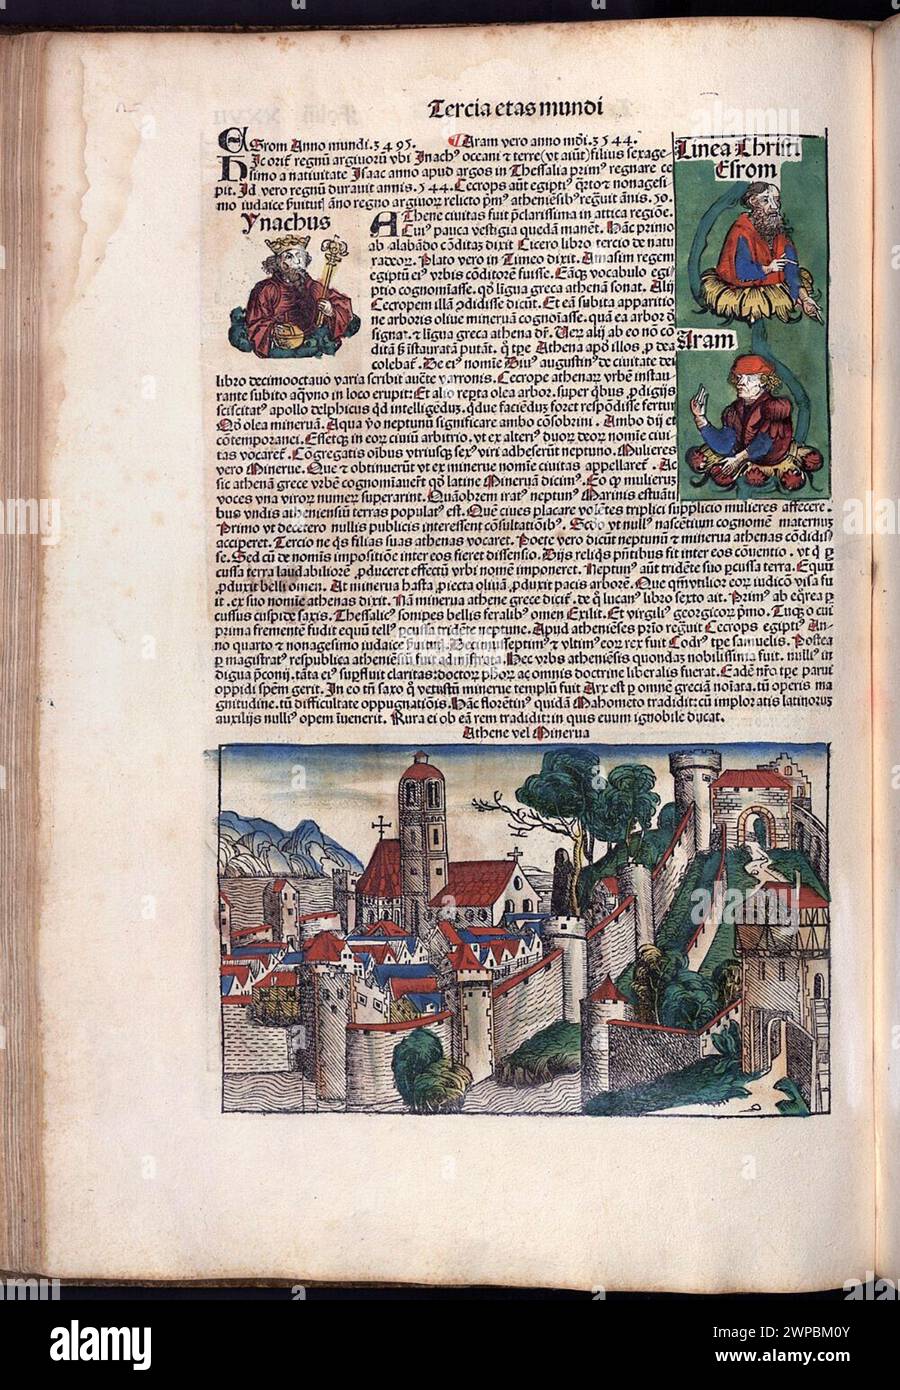 Tercia etas mundi
ESrom Anno mundi. 3495. Aram vero anno mdi. 3544.
HIc orit regnũ argiuorũ vbi Inachꝰ oceani et terre (vt aiũt) filius sexage
simo a natiuitate Isaac anno apud argos in Thessalia primꝰ regnare ce
pit. Id vero regnũ durauit annis. 544. Cecrops aũt egiptiꝰ qͣrto et nonagesi
mo iudaice ſuitutꝭ año regno argiuoꝝ relicto pͥmꝰ atheniẽsibꝰ regͣuit ãnis. 50.
Linea Christi
Esrom
Ynachus
AThene ciuitas fuit pͣclarissima in attica regiõe.
Cuiꝰ pauca vestigia quedã manẽt. Hãc primo
ab alabãdo cõditã dixit Cicero libro tercio de natu
ra deoꝝ. Plato vero in Timeo dixit. Amasim regem
egiptũ eiꝰ vrbis cõditorẽ fuisse. Eãqꝫ vocabulo egi
ptio cognomĩasse. qđ lĩgua greca athenã sonat. Alij
Cecropem illã ↄdidisse dicũt. Et eã subita apparitio
ne arboris oliue mineruã cognoĩasse. quã ea arbor đ
signat. et lĩgua greca athena dr̃. Veꝝ alij ab eo nõ cõ
ditã sꝫ ĩstauratã putãt. qͥ tꝑe Athena apđ illos ꝓ dea
colebat. De eiꝰ noĩe Diuꝰ augustinꝰ de ciuitate dei
Aram
libro decimooctauo varia scribit auc̃te varronis. Cecrope athenaꝝ vrbẽ instau
rante subito aqͣ vno in loco erupit: Et alio repta olea arbor. super qͥbus ꝓdigijs
sciscitatꝰ apollo delphicus qͥd intelligẽdũ. qͥdue faciẽdũ foret respõdisse fertur
Qđ olea mineruã. Aqua vo neptunũ significare ambo cõsobrini. Ambo dij et
cõtemporanei. Essetqꝫ in eoꝝ ciuiũ arbitrio. vt ex alterꝰ duoꝝ deoꝝ nomĩe ciui
tas vocaret. Cõgregatis oĩbus vtriusqꝫ sexꝰ viri adheserũt neptuno. Mulieres
vero Minerue. Que et obtinuerũt vt ex minerue nomĩe ciuitas appellaret. Ac
sic athenã grece vrbẽ cognomĩauerũt qđ latine Mineruã dicimꝰ. Eo qͥ mulierus
voces vna viroꝝ numeꝝ superarint. Quãobrem iratꝰ neptunꝰ Marinis estuãti
bus vndis atheniensiũ terras populatꝰ est. Quẽ ciues placare volẽtes triplici supplicio mulieres affecere.
Primo vt deccetero nullis publicis interessent cõsultatiõibꝰ. Scđo vt nullꝰ nascẽtium cognomẽ maternuꝫ
acciperet. Tercio ne qͥs filias suas athenas vocaret. Poete vero dicũt neptunũ et minerua athenas cõdidis
se. Sed cũ de nomĩs impositiõe inter eos fieret dissensio. Dijs reliqͥs pñtibus fit inter eos cõuentio. vt qͥ ꝑ
cussa terra laudabiliorẽ ꝓduceret effectũ vrbi nomẽ imponeret. Neptunꝰ aũt tridẽte suo ꝑcussa terra. Equũ
ꝓduxit belli omen. At minerua hasta ꝓiecta oliuã ꝓduxit pacis arborẽ. Que qm̃ vtilior eoꝝ iudicio visa fu
it. ex suo nomĩe athenas dixit. Nã minerua athene grece dicit. de qͥ lucanꝰ libro sexto ait. Primꝰ ab eqͥrea ꝑ
cussus cuspide saxis. Thessalicꝰ sonipes bellis feralibꝰ omen Exilit. Et virgiliꝰ georgicoꝝ pͥmo. Tuqꝫ o cui
prima frementẽ fudit equũ tellꝰ ꝑcussa tridẽte neptune. Apud athenieses pͥmo regͣuit Cecrops egiptiꝰ An
no quarto et nonagesimo iudaice ſuitutꝭ. Decimusseptimꝰ et vltimꝰ eoꝝ rex fuit Codrꝰ tꝑe samuelis. Postea
ꝑ magistratꝰ respublica atheniẽsiũ fuit administrata. Hec vrbs atheniẽsis quondaꝫ nobilissima fuit. nulliꝰ in
digua pͣconij. tãta ei supfluit claritas: doctoꝝ phoꝝ ac omnis doctrine liberalis fuerat. Eadẽ nr̃o tꝑe parui
oppidi spẽm gerit. In eo tñ saxo qͥ vetustũ minerue templũ fuit Arx est ꝑ omnẽ greciã noĩata. tũ operis ma
gnitudine. tũ difficultate oppugnatiõis. Hãc florẽtinꝰ quidã Mahometo tradidit: cũ imploratis latinoruꝫ
auxilijs nullũ opem ĩuenerit. Rura ei ob eã rem tradidit: in quis euum ignobile ducat.
Athene vel Minerua
alamy
2WPBM0Y
Image ID: 2WPBM0Y
www.alamy.com